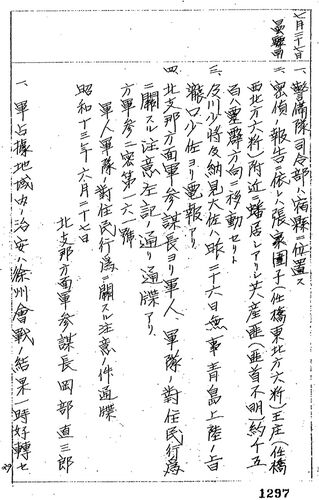 七月二十七日
一、警備隊司令部ハ宿縣ニ位置ス
二、密偵ノ報告ニ依レハ張表圍子(任橋東北方六粁)王庄(任橋
西北方六粁)附近ニ蟠居シアリシ共産匪(匪首不明)約千五
百ハ靈璧方向ニ移動セリト
三、及川少将及納見大佐ハ昨二十六日無事青島上陸ノ旨
瀧口少佐ヨリ電報アリ
四、北支那方面軍参謀長ヨリ軍人、軍隊ノ對住民行為
ニ關スル注意左記ノ通リ通牒アリ
方軍参二密第一六一號
軍人軍隊ノ對住民行為ニ關スル注意ノ件通牒
昭和十三年六月二十七日
北支那方面軍参謀長 岡部直三郎
一、軍占據地域内ノ治安ハ徐州會戰ノ結果一時好轉セ
1297